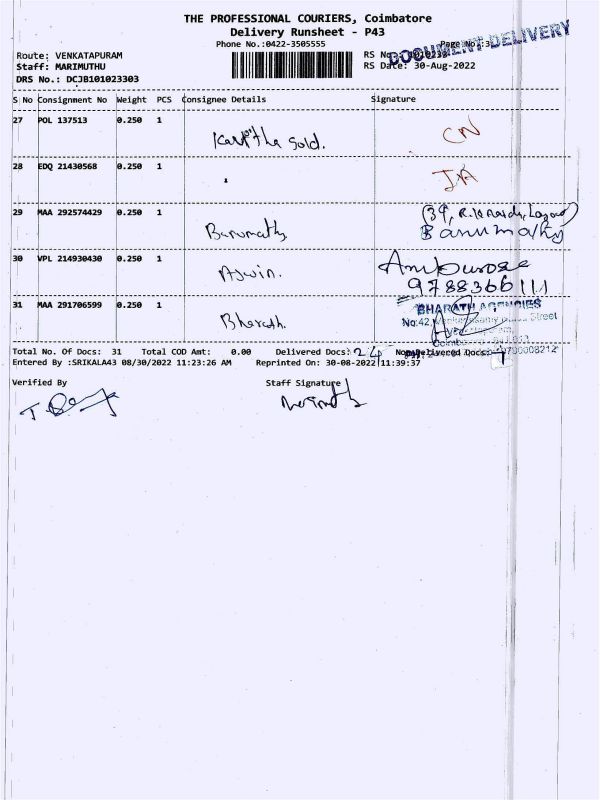 THE PROFESSIONAL COURIERS, Coimbatore
Delivery Runsheet - P43
Phone No.:0422-3505555
Page No.:3
DOCUMENT-DELIVERY
Route: VENKATAPURAM
RS No.:
Staff: MARIMUTHU
RS Date: 30-Aug-2022
DRS No.: DCJB101023303
S No Consignment No Weight PCS Consignee Details Signature
27 POL 137513 0.250 1 Kavitha Gold. CN
28 EDQ 21430568 0.250 1 IA
29 MAA 292574429 0.250 1 Banumathy (39,
Banumathy
30 VPL 214930430 0.250 1 Aswin. Amburose
9788366111
31 MAA 291706599 0.250 1 Bharath. BHARATH AGENCIES
No:42, Street
Total No. Of Docs: 31 Total COD Amt: 0.00 Delivered Docs: 24 Non Delivered Docs: 7
Entered By :SRIKALA43 08/30/2022 11:23:26 AM Reprinted On: 30-08-2022 11:39:37
Verified By Staff Signature